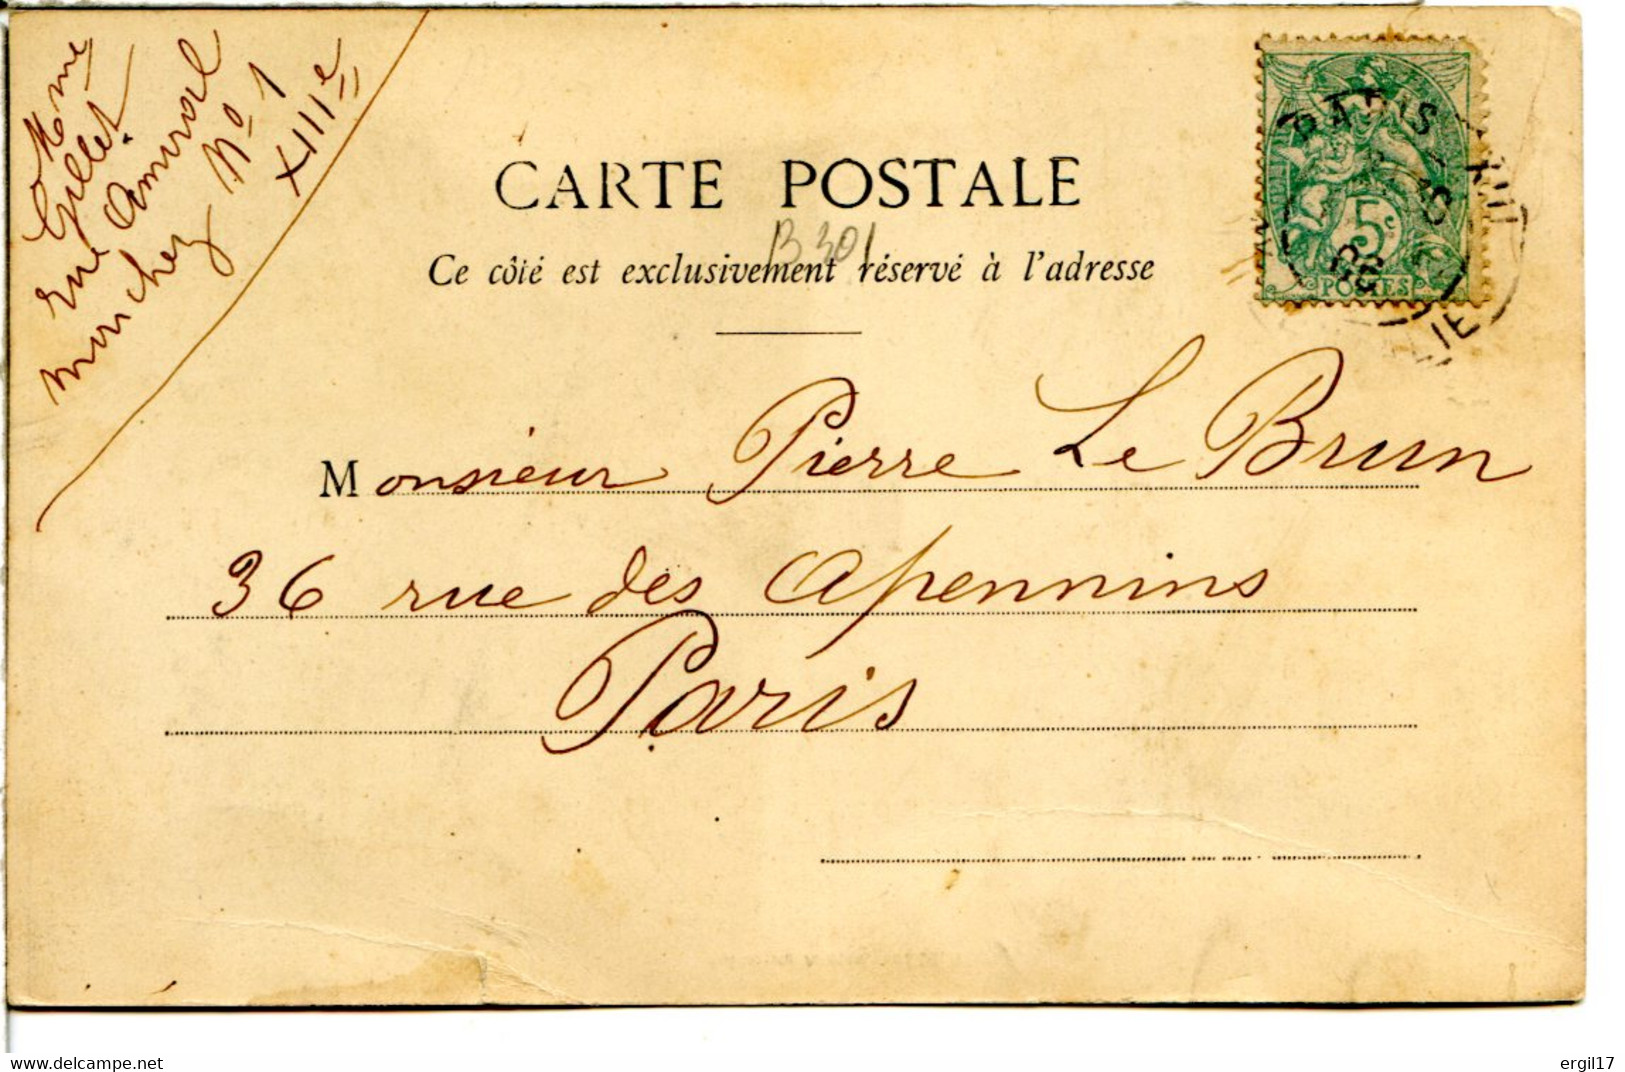 Mme
Gillet
rue Amiral
mouchez No 1
XIIIe
CARTE POSTALE
B 301
Ce côté est exclusivement réservé à l'adresse
PARIS
5c
POSTES
Monsieur Pierre Le Brun
36 rue des Apennins
Paris
ergil17